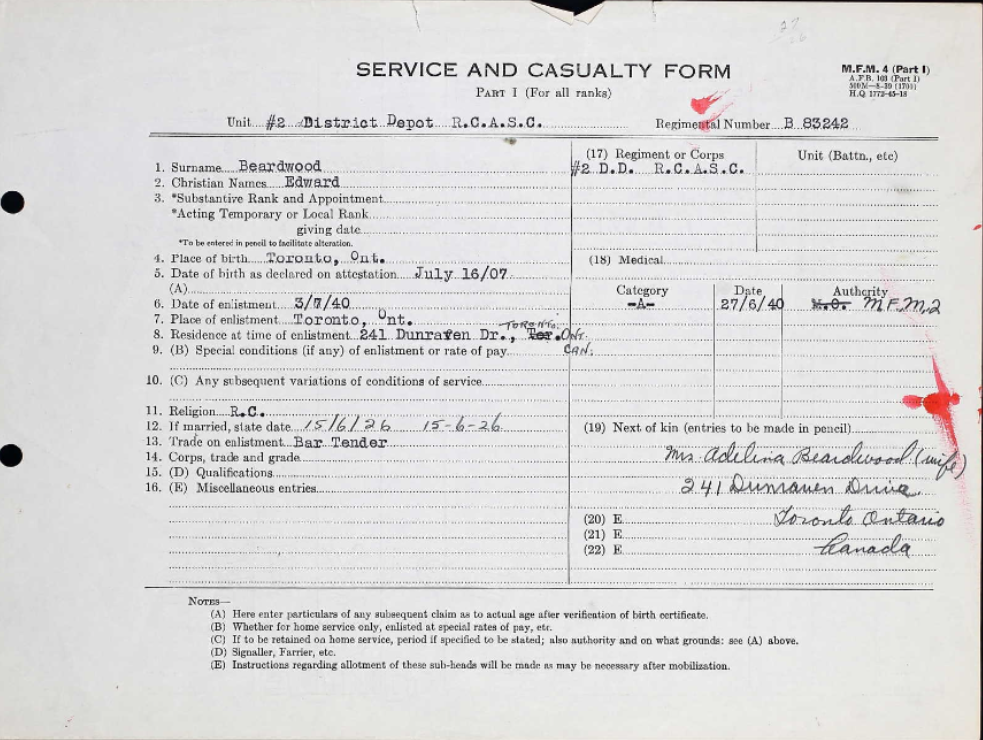 27
26
SERVICE AND CASUALTY FORM
PART I (For all ranks)
M.F.M. 4 (Part I)
A.F.B. 103 (Part I)
500M—8-39 (1701)
H.Q. 1772-45-18
Unit #2 District Depot R.C.A.S.C.
Regimental Number B 83242
1. Surname Beardwood
2. Christian Names Edward
3. *Substantive Rank and Appointment
*Acting Temporary or Local Rank
giving date
*To be entered in pencil to facilitate alteration.
4. Place of birth Toronto, Ont.
5. Date of birth as declared on attestation July 16/07
(A)
6. Date of enlistment 3/7/40
7. Place of enlistment Toronto, Ont.
8. Residence at time of enlistment 241 Dunraven Dr., Tor. TORONTO. ONT.
9. (B) Special conditions (if any) of enlistment or rate of pay CAN.
10. (C) Any subsequent variations of conditions of service
11. Religion R.C.
12. If married, state date 15/6/26 15-6-26
13. Trade on enlistment Bar Tender
14. Corps, trade and grade
15. (D) Qualifications
16. (E) Miscellaneous entries
(17) Regiment or Corps
Unit (Battn., etc)
#2 D.D. R.C.A.S.C.
(18) Medical
Category Date Authority
-A- 27/6/40 M.O. M.F.M.2
(19) Next of kin (entries to be made in pencil)
Mrs Adelina Beardwood (wife)
241 Dunraven Drive
(20) E Toronto Ontario
(21) E
(22) E Canada
NOTES—
(A) Here enter particulars of any subsequent claim as to actual age after verification of birth certificate.
(B) Whether for home service only, enlisted at special rates of pay, etc.
(C) If to be retained on home service, period if specified to be stated; also authority and on what grounds: see (A) above.
(D) Signaller, Farrier, etc.
(E) Instructions regarding allotment of these sub-heads will be made as may be necessary after mobilization.